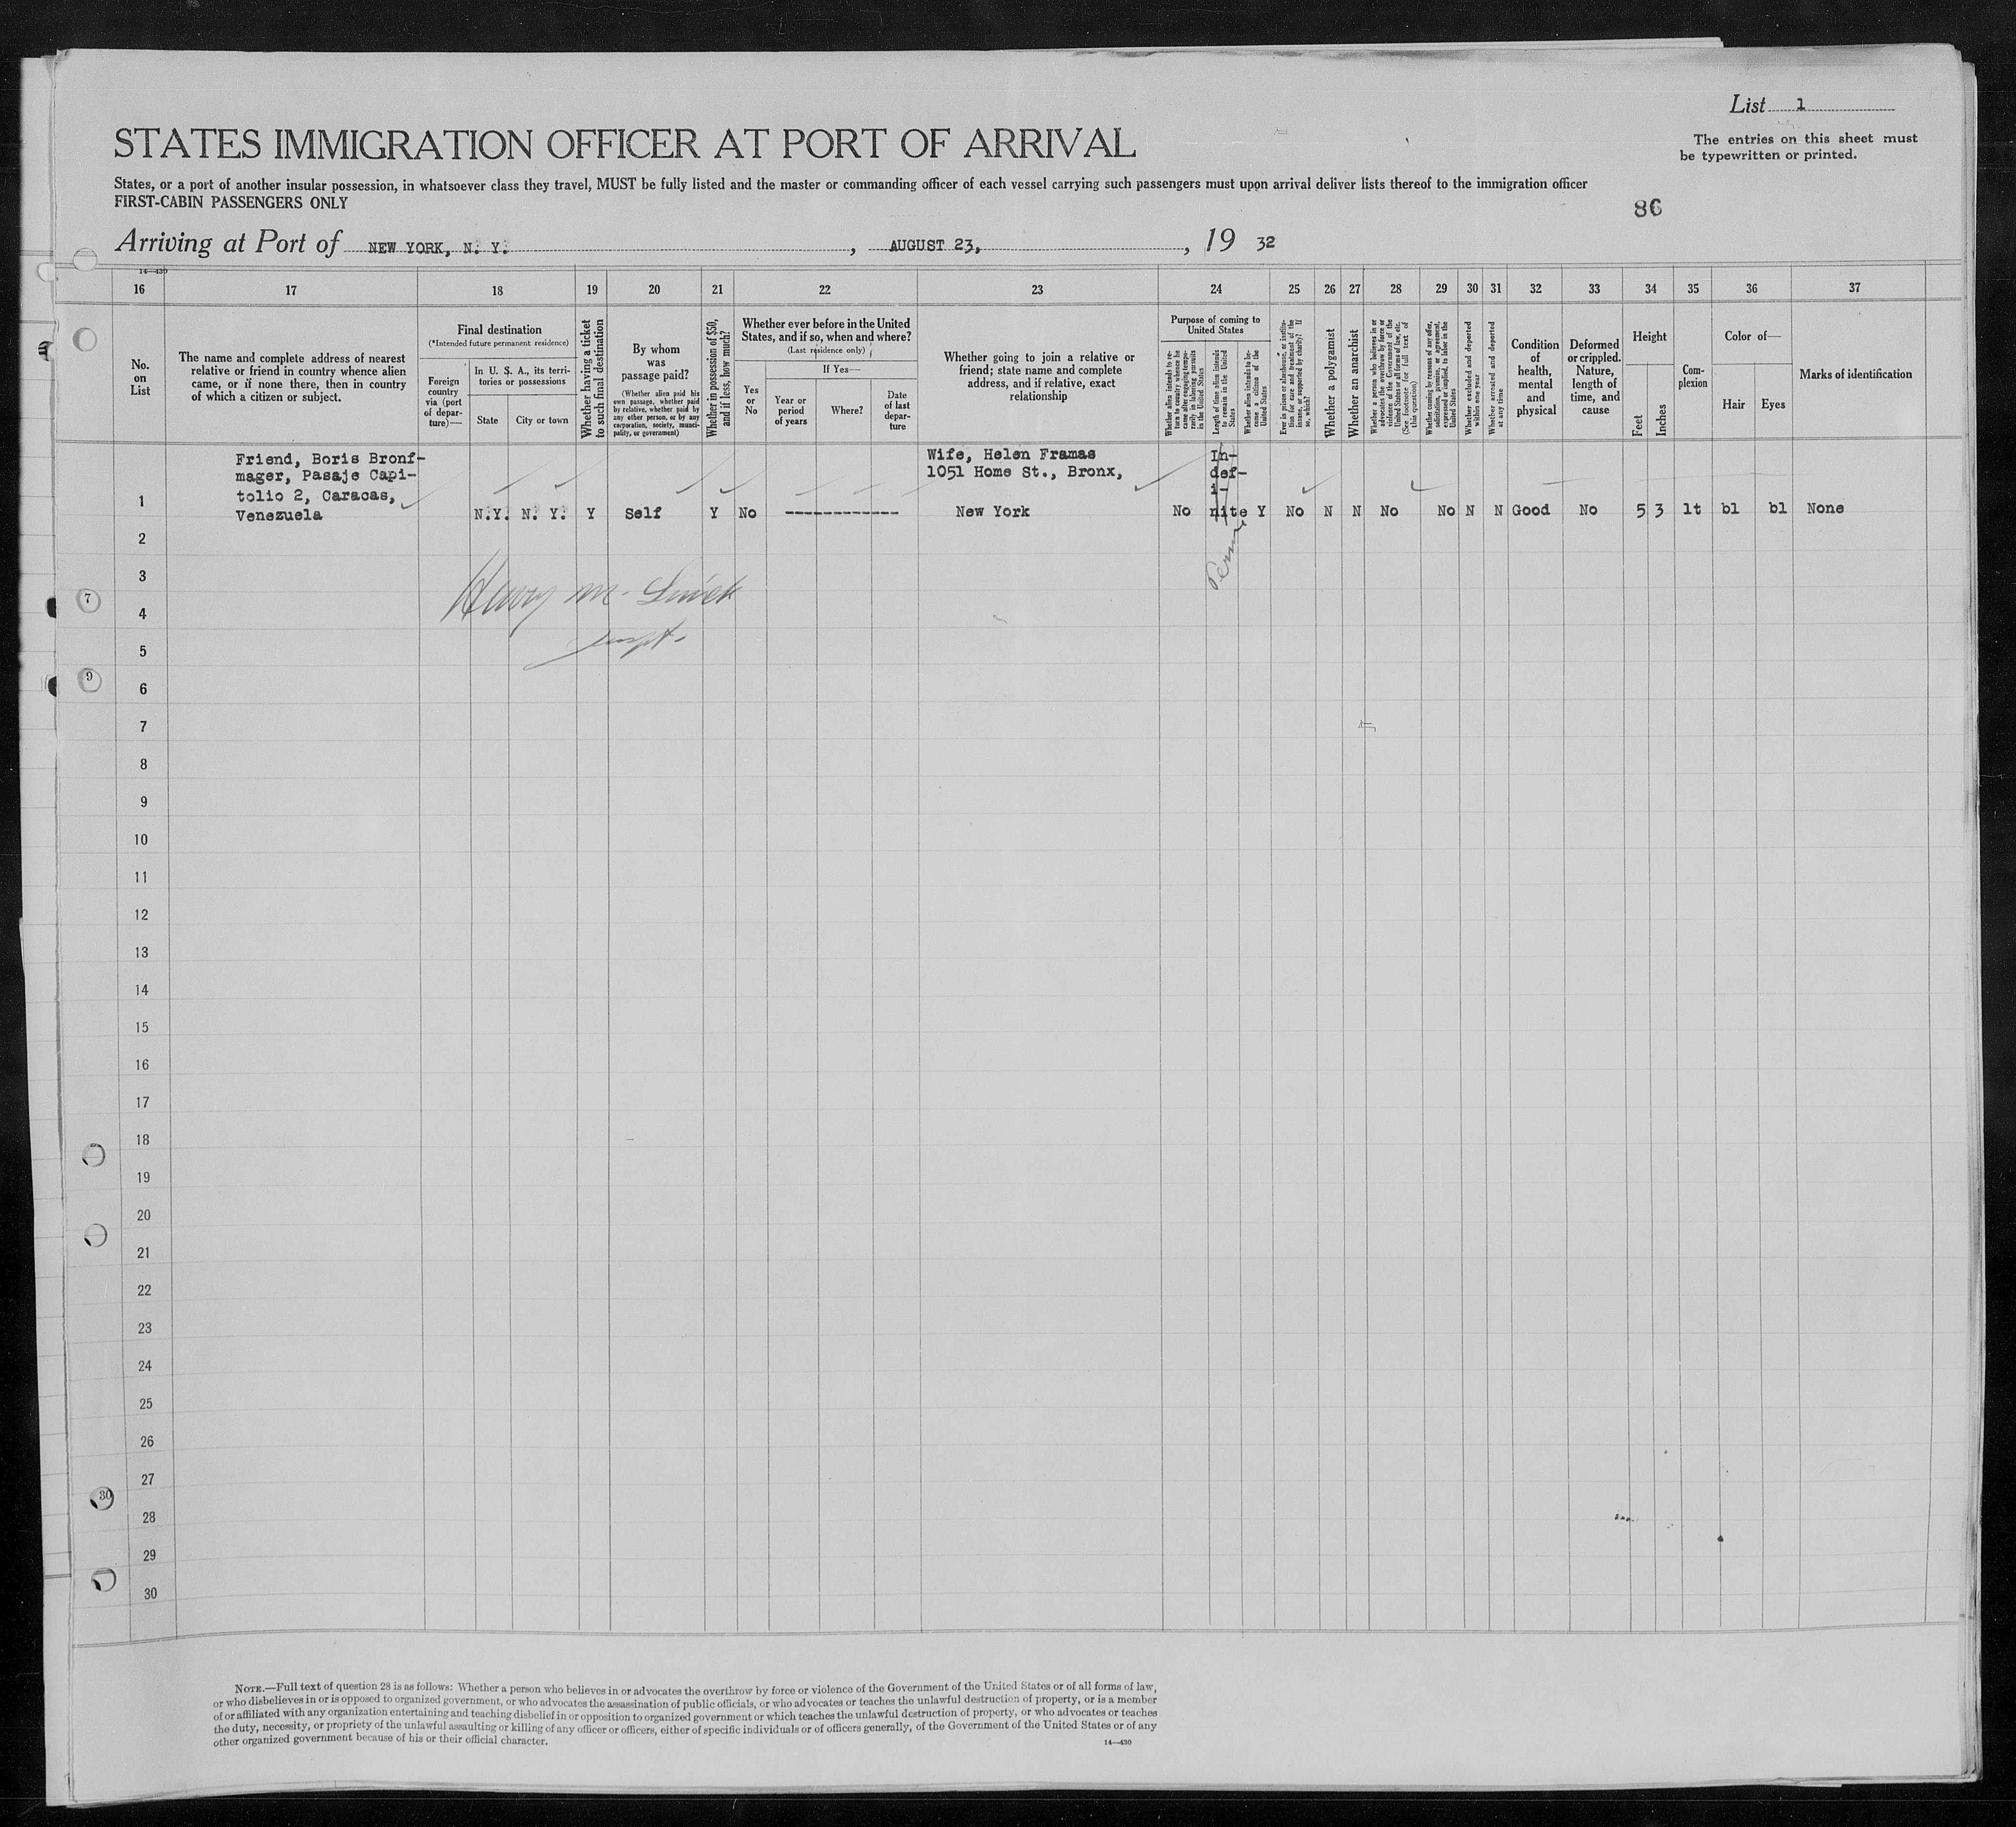 List 1
The entries on this sheet must
be typewritten or printed.
STATES IMMIGRATION OFFICER AT PORT OF ARRIVAL
States, or a port of another insular possession, in whatsoever class they travel, MUST be fully listed and the master or commanding officer of each vessel carrying such passengers must upon arrival deliver lists thereof to the immigration officer
FIRST-CABIN PASSENGERS ONLY
86
Arriving at Port of NEW YORK, N. Y. , AUGUST 23, , 19 32
14—430
16 17 18 19 20 21 22 23 24 25 26 27 28 29 30 31 32 33 34 35 36 37
No.
on
List
The name and complete address of nearest
relative or friend in country whence alien
came, or if none there, then in country
of which a citizen or subject.
Final destination
(*Intended future permanent residence)
Foreign
country
via (port
of depar-
ture)—
In U. S. A., its terri-
tories or possessions
State
City or town
Whether having a ticket
to such final destination
By whom
was
passage paid?
(Whether alien paid his
own passage, whether paid
by relative, whether paid by
any other person, or by any
corporation, society, munici-
pality, or government)
Whether in possession of $50,
and if less, how much?
Whether ever before in the United
States, and if so, when and where?
(Last residence only)
Yes
or
No
If Yes—
Year or
period
of years
Where?
Date
of last
depar-
ture
Whether going to join a relative or
friend; state name and complete
address, and if relative, exact
relationship
Purpose of coming to
United States
Whether alien intends to re-
turn to country whence he
came after engaging tempo-
rarily in laboring pursuits
in the United States
Length of time alien intends
to remain in the United
States
Whether alien intends to be-
come a citizen of the
United States
Ever in prison or almshouse, or institu-
tion for care and treatment of the
insane, or supported by charity? If
so, which?
Whether a polygamist
Whether an anarchist
Whether a person who believes in or
advocates the overthrow by force or
violence of the Government of the
United States or all forms of law, etc.
(See footnote for full text of
this question)
Whether coming by reasons of any offer,
solicitation, promise, or agreement,
expressed or implied, to labor in the
United States
Whether excluded and deported
within one year
Whether arrested and deported
at any time
Condition
of
health,
mental
and
physical
Deformed
or crippled.
Nature,
length of
time, and
cause
Height
Feet
Inches
Com-
plexion
Color of—
Hair
Eyes
Marks of identification
Friend, Boris Bronf-
mager, Pasaje Capi-
tolio 2, Caracas,
Venezuela
Wife, Helen Framas
1051 Home St., Bronx,
New York
In-
def-
i-
nite
1 N.Y. N. Y. Y Self Y No ------------ No Y No N N No No N N Good No 5 3 lt bl bl None
Perm
2
3
Henry M.
4
5
6
7
8
9
10
11
12
13
14
15
16
17
18
19
20
21
22
23
24
25
26
27
28
29
30
7
9
30
NOTE.—Full text of question 28 is as follows: Whether a person who believes in or advocates the overthrow by force or violence of the Government of the United States or of all forms of law,
or who disbelieves in or is opposed to organized government, or who advocates the assassination of public officials, or who advocates or teaches the unlawful destruction of property, or is a member
of or affiliated with any organization entertaining and teaching disbelief in or opposition to organized government or which teaches the unlawful destruction of property, or who advocates or teaches
the duty, necessity, or propriety of the unlawful assaulting or killing of any officer or officers, either of specific individuals or of officers generally, of the Government of the United States or of any
other organized government because of his or their official character.
14—430